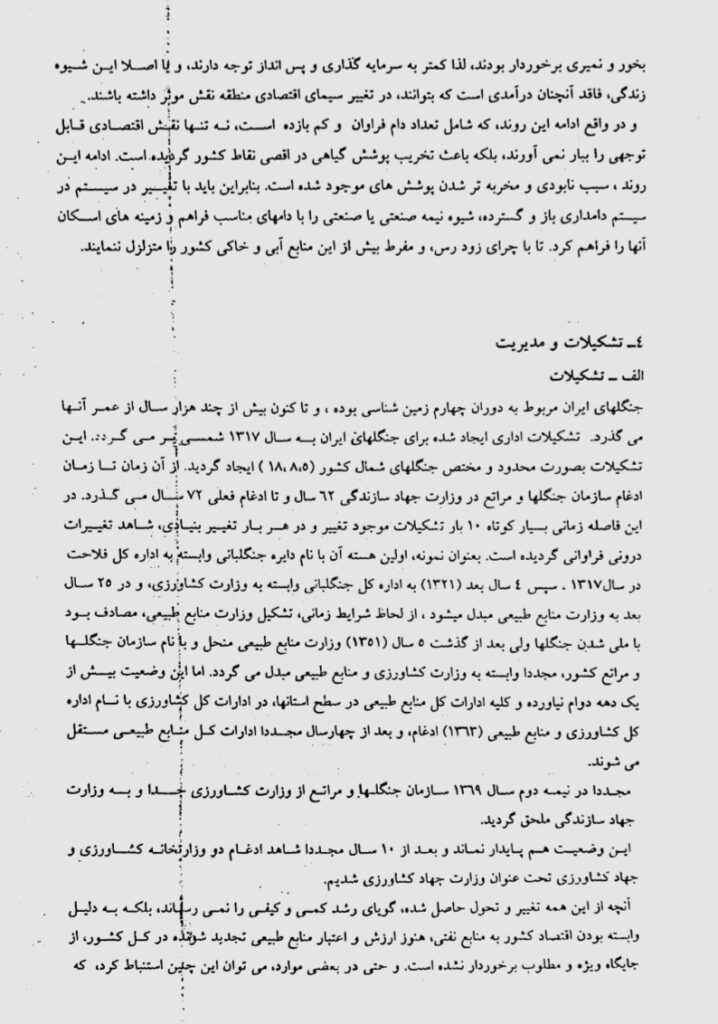 بخور و نمیری برخوردار بودند، لذا کمتر به سرمایه گذاری و پس انداز توجه دارند، و یا اصلا این شیوه
زندگی، فاقد آنچنان درآمدی است که بتوانند، در تغییر سیمای اقتصادی منطقه نقش موثر داشته باشند.
و در واقع ادامه این روند، که شامل تعداد دام فراوان و کم بازده است، نه تنها نقش اقتصادی قابل
توجهی را ببار نمی آورند، بلکه باعث تخریب پوشش گیاهی در اقصی نقاط کشور گردیده است. ادامه این
روند، سبب نابودی و مخربه تر شدن پوشش های موجود شده است. بنابراین باید با تغییر در سیستم در
سیستم دامداری باز و گسترده، شیوه نیمه صنعتی یا صنعتی را با دامهای مناسب فراهم و زمینه های اسکان
آنها را فراهم کرد. تا با چرای زود رس، و مفرط بیش از این منابع آبی و خاکی کشور را متزلزل ننمایند.
٤ـ تشکیلات و مدیریت
الف ـ تشکیلات
جنگلهای ایران مربوط به دوران چهارم زمین شناسی بوده ، و تا کنون بیش از چند هزار سال از عمر آنها
می گذرد. تشکیلات اداری ایجاد شده برای جنگلهای ایران به سال ۱۳۱۷ شمسی بر می گردد. این
تشکیلات بصورت محدود و مختص جنگلهای شمال کشور (۱۸،۸،۵ ) ایجاد گردید. از آن زمان تا زمان
ادغام سازمان جنگلها و مراتع در وزارت جهاد سازندگی ٦۲ سال و تا ادغام فعلی ۷۲ سال می گذرد. در
این فاصله زمانی بسیار کوتاه ۱۰ بار تشکیلات موجود تغییر و در هر بار تغییر بنیادی، شاهد تغییرات
درونی فراوانی گردیده است. بعنوان نمونه، اولین هسته آن با نام دایره جنگلبانی وابسته به اداره کل فلاحت
در سال۱۳۱۷ . سپس ٤ سال بعد (۱۳۲۱) به اداره کل جنگلبانی وابسته به وزارت کشاورزی، و در ۲۵ سال
بعد به وزارت منابع طبیعی مبدل میشود ، از لحاظ شرایط زمانی، تشکیل وزارت منابع طبیعی، مصادف بود
با ملی شدن جنگلها ولی بعد از گذشت ۵ سال (۱۳۵۱) وزارت منابع طبیعی منحل و با نام سازمان جنگلها
و مراتع کشور، مجددا وابسته به وزارت کشاورزی و منابع طبیعی مبدل می گردد. اما این وضعیت بیش از
یک دهه دوام نیاورده و کلیه ادارات کل منابع طبیعی در سطح استانها، در ادارات کل کشاورزی با نام اداره
کل کشاورزی و منابع طبیعی (۱۳٦۳) ادغام، و بعد از چهارسال مجددا ادارات کل منابع طبیعی مستقل
می شوند.
مجددا در نیمه دوم سال ۱۳٦۹ سازمان جنگلها و مراتع از وزارت کشاورزی جدا و به وزارت
جهاد سازندگی ملحق گردید.
این وضعیت هم پایدار نماند و بعد از ۱۰ سال مجددا شاهد ادغام دو وزارتخانه کشاورزی و
جهاد کشاورزی تحت عنوان وزارت جهاد کشاورزی شدیم.
آنچه از این همه تغییر و تحول حاصل شده، گویای رشد کمی و کیفی را نمی رساند، بلکه به دلیل
وابسته بودن اقتصاد کشور به منابع نفتی، هنوز ارزش و اعتبار منابع طبیعی تجدید شونده در کل کشور، از
جایگاه ویژه و مطلوب برخوردار نشده است. و حتی در بعضی موارد، می توان این چنین استنباط کرد، که